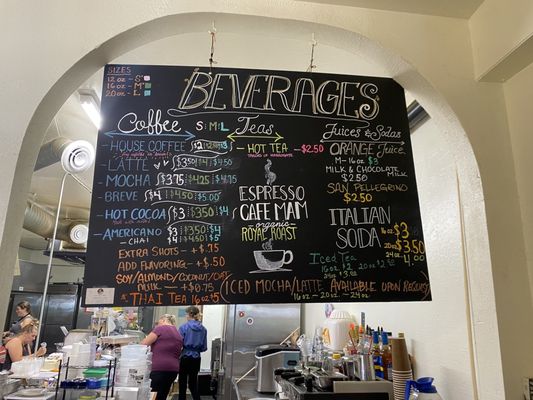 SIZES
12 oz - S
16 oz - M
20 oz - L
BEVERAGES
Coffee S : M : L
HOUSE COFFEE
LATTE $3.50
MOCHA $3.75 $4.25 $4.75
BREVE $4 $4.50 $5.00
HOT COCOA $3 $3.50 $4
AMERICANO $3 $3.50 $4
CHAI $4 $4.50 $5
EXTRA SHOTS - $.75
ADD FLAVORING - $.50
SOY/ALMOND/COCONUT/OAT
MILK - +$0.75
THAI TEA 16oz $5
Teas
HOT TEA - $2.50
ESPRESSO
CAFE MAM
organic
ROYAL ROAST
Juices & Sodas
ORANGE JUICE
M - 16oz $3
MILK & CHOCOLATE MILK
$2.50
SAN PELLEGRINO
$2.50
ITALIAN SODA
16oz $3
20oz $3.50
24oz $4.00
Iced Tea
16oz $2
(ICED MOCHA/LATTE AVAILABLE UPON REQUEST)
16oz - 20oz - 24oz